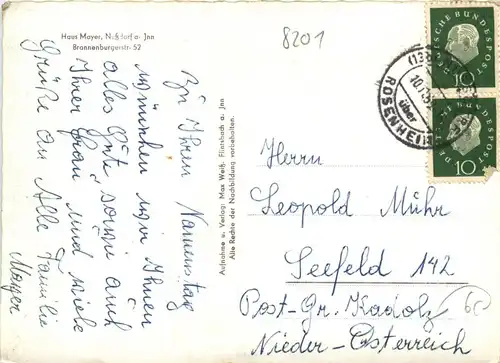 Haus Mayer, Nußdorf a. Jnn
Brannenburgerstr. 52
8201
Zu Ihrem Namenstag
wünschen wir Ihnen
alles Gute sowie auch
Ihrer Frau und viele
Grüße an Alle Familie
Mayer
Aufnahme u. Verlag: Max Weiß, Flintsbach a. Jnn
Alle Rechte der Nachbildung vorbehalten.
DEUTSCHE BUNDESPOST
10
DEUTSCHE BUNDESPOST
10
(13b)
über
ROSENHEIM
Herrn
Leopold Mühr
Seefeld 142
Post-Gr. Kadolz
Nieder-Österreich